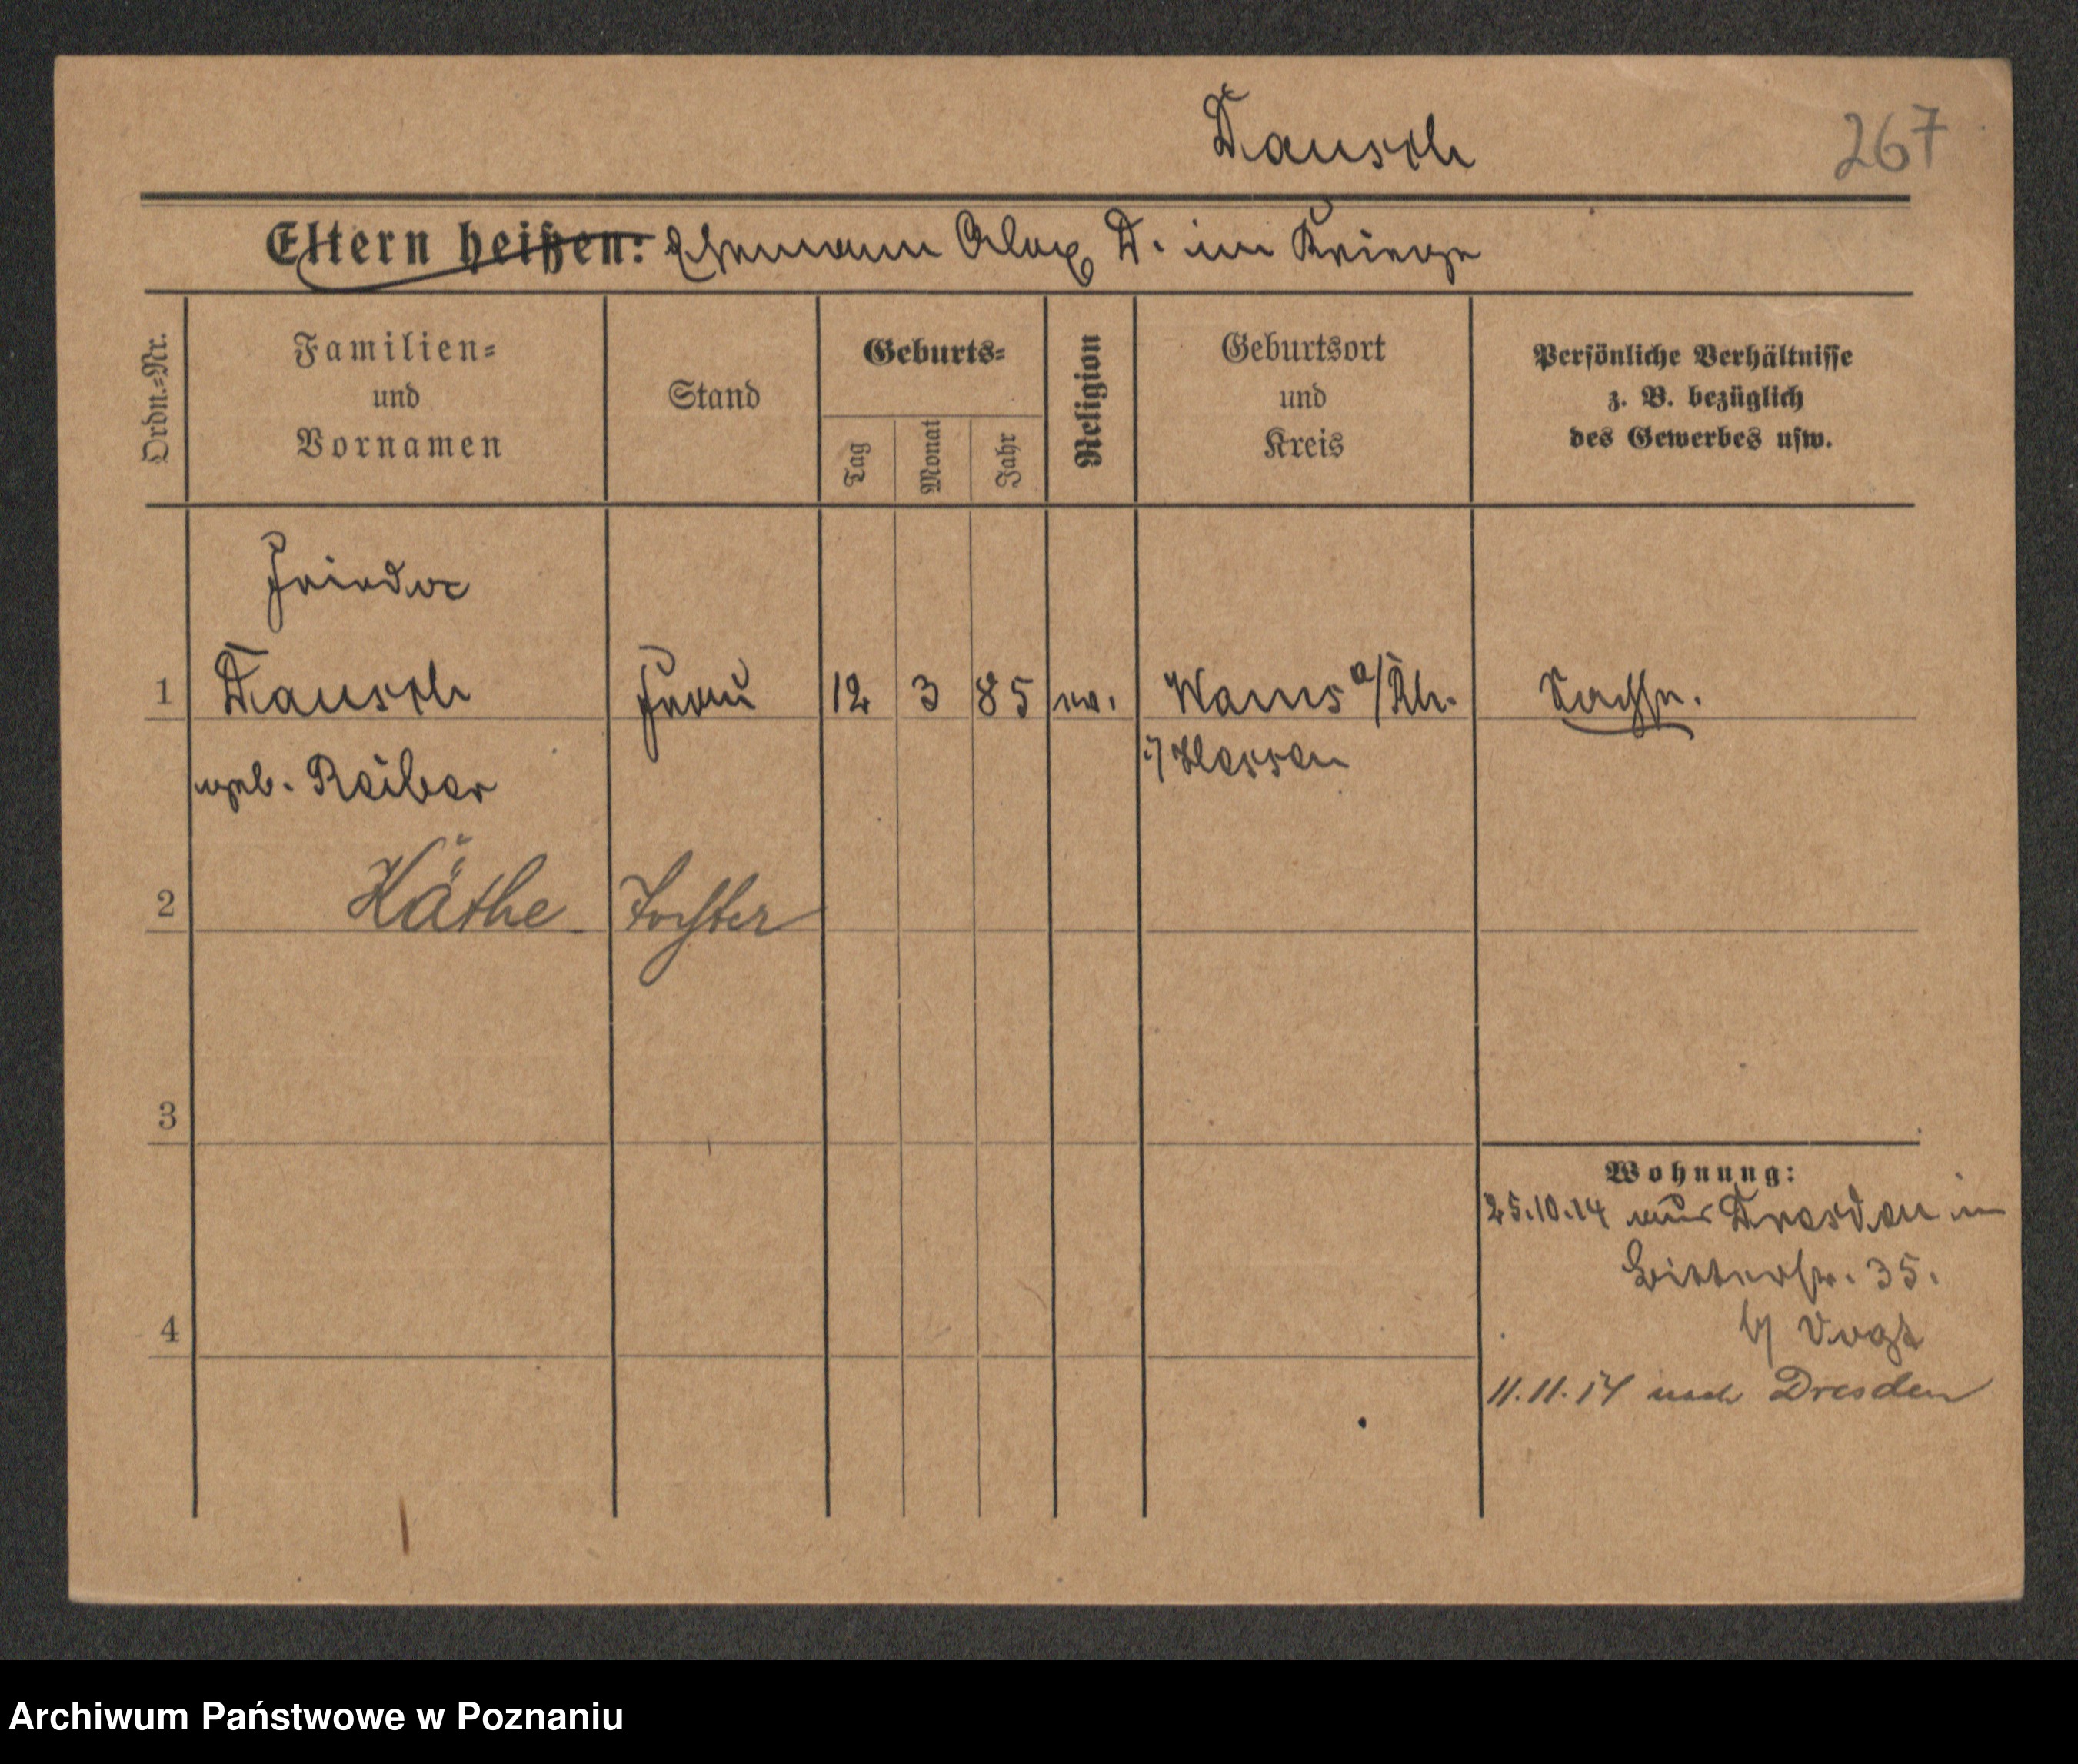 Dausch
267
Eltern heißen: Ehemann Alex D. im Kriege
Ordn.-Nr.
Familien-
und
Vornamen
Stand
Geburts-
Tag
Monat
Jahr
Religion
Geburtsort
und
Kreis
Persönliche Verhältnisse
z. B. bezüglich
des Gewerbes usw.
Frieda
1 Dausch Frau 12 3 85 ev. a/Rh. Sachse.
i/ Hessen
geb. Reiber
2 Käthe Tochter
3
Wohnung:
25.10.14 aus Dresden in
Ritterstr. 35.
b/ Vogt
4
11.11.14 nach Dresden
Archiwum Państwowe w Poznaniu